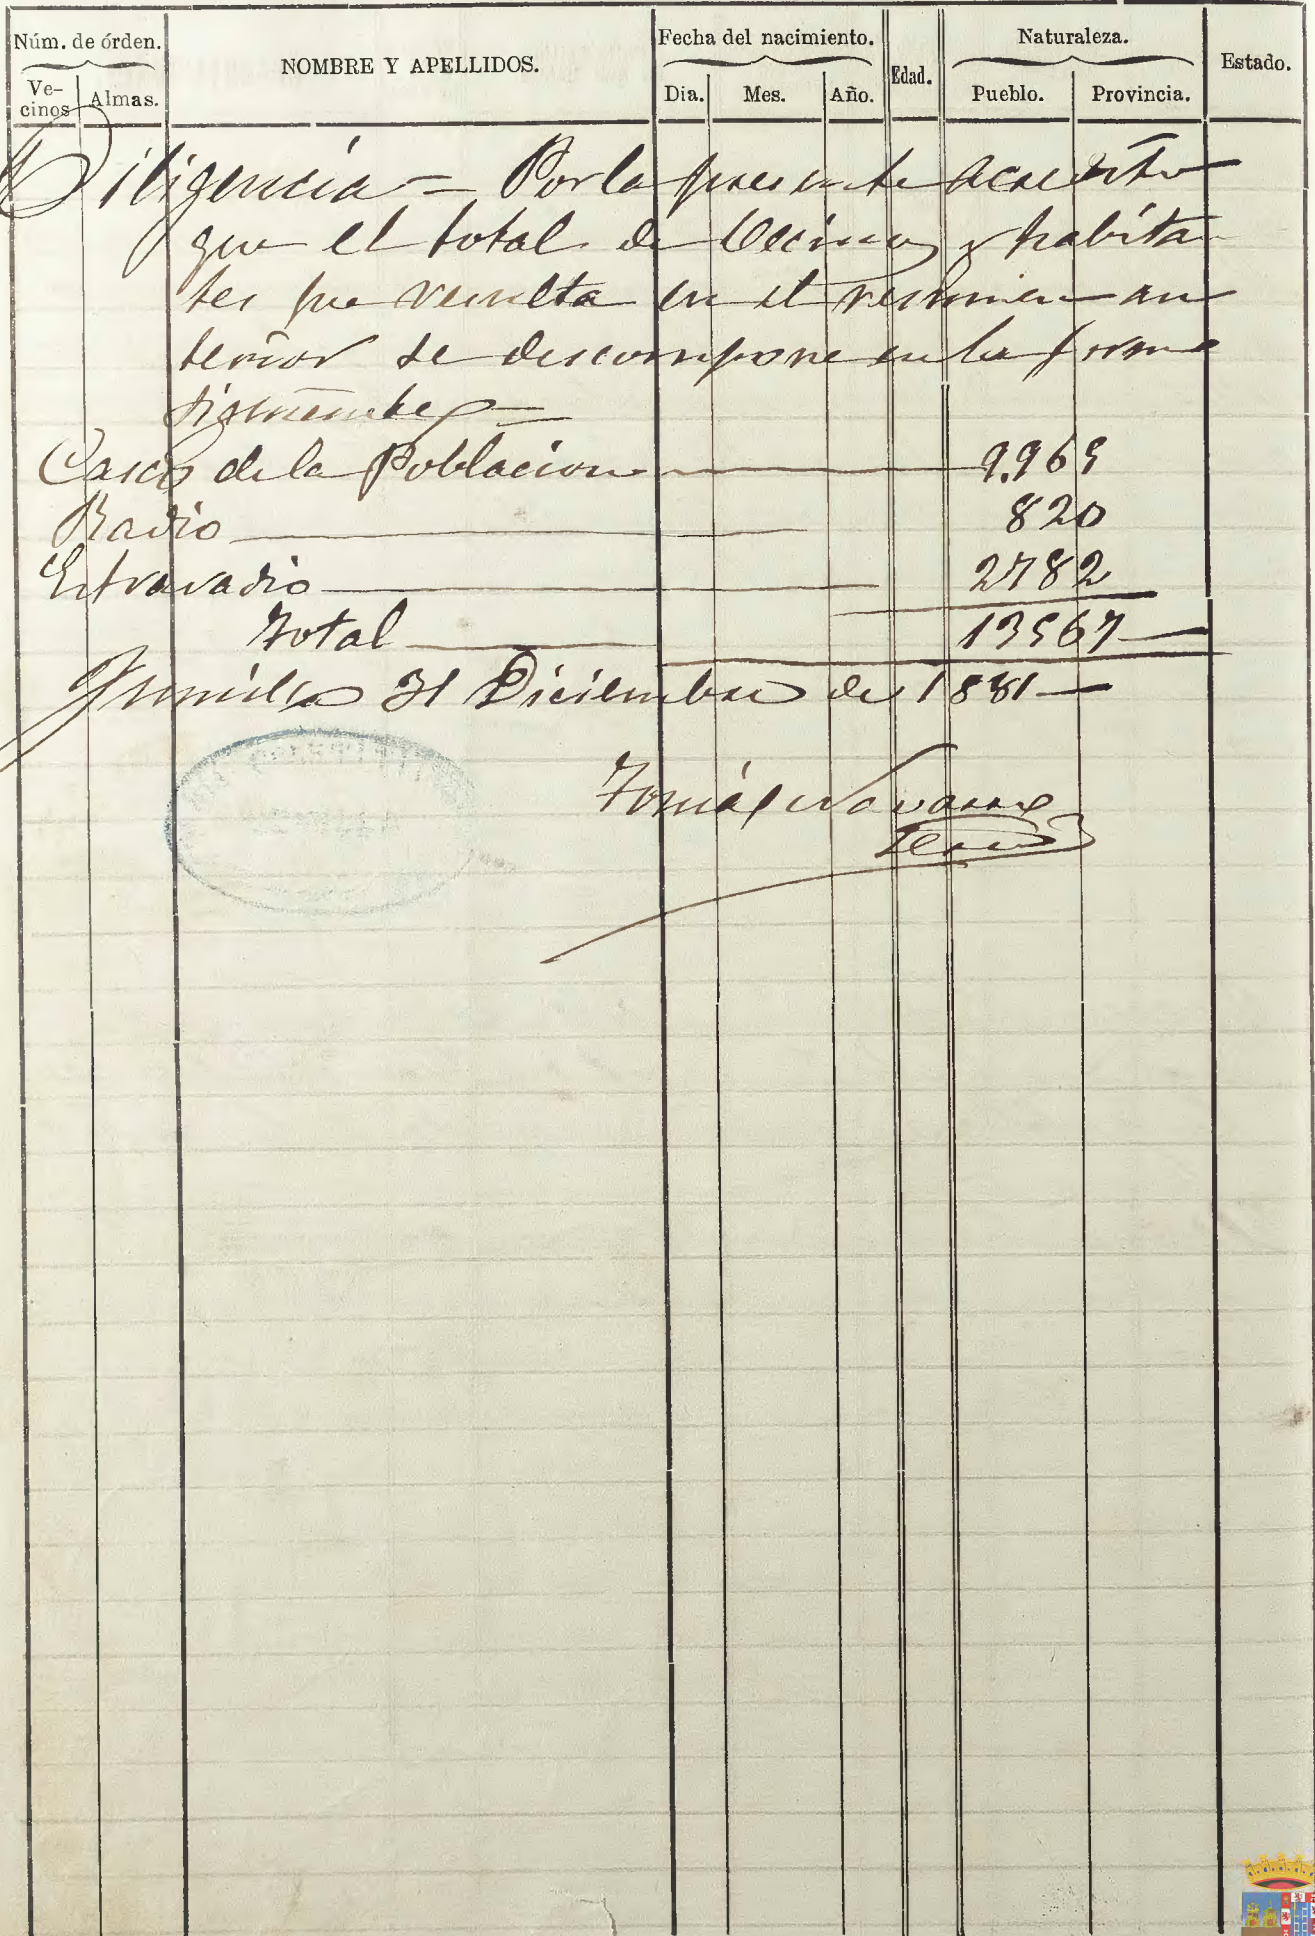 Núm. de órden.
Ve-
cinos
Almas.
NOMBRE Y APELLIDOS.
Fecha del nacimiento.
Dia.
Mes.
Año.
Edad.
Naturaleza.
Pueblo.
Provincia.
Estado.
Diligencia = Por la presente acredito
que el total de Vecinos y habitan
tes que resulta en el resumen an
terior se descompone en la forma
siguiente =
Casco de la Poblacion 9.965
Radio 820
Estraradio 2782
Total 13567
Jumilla 31 Diciembre de 1881
Tomás Navarro